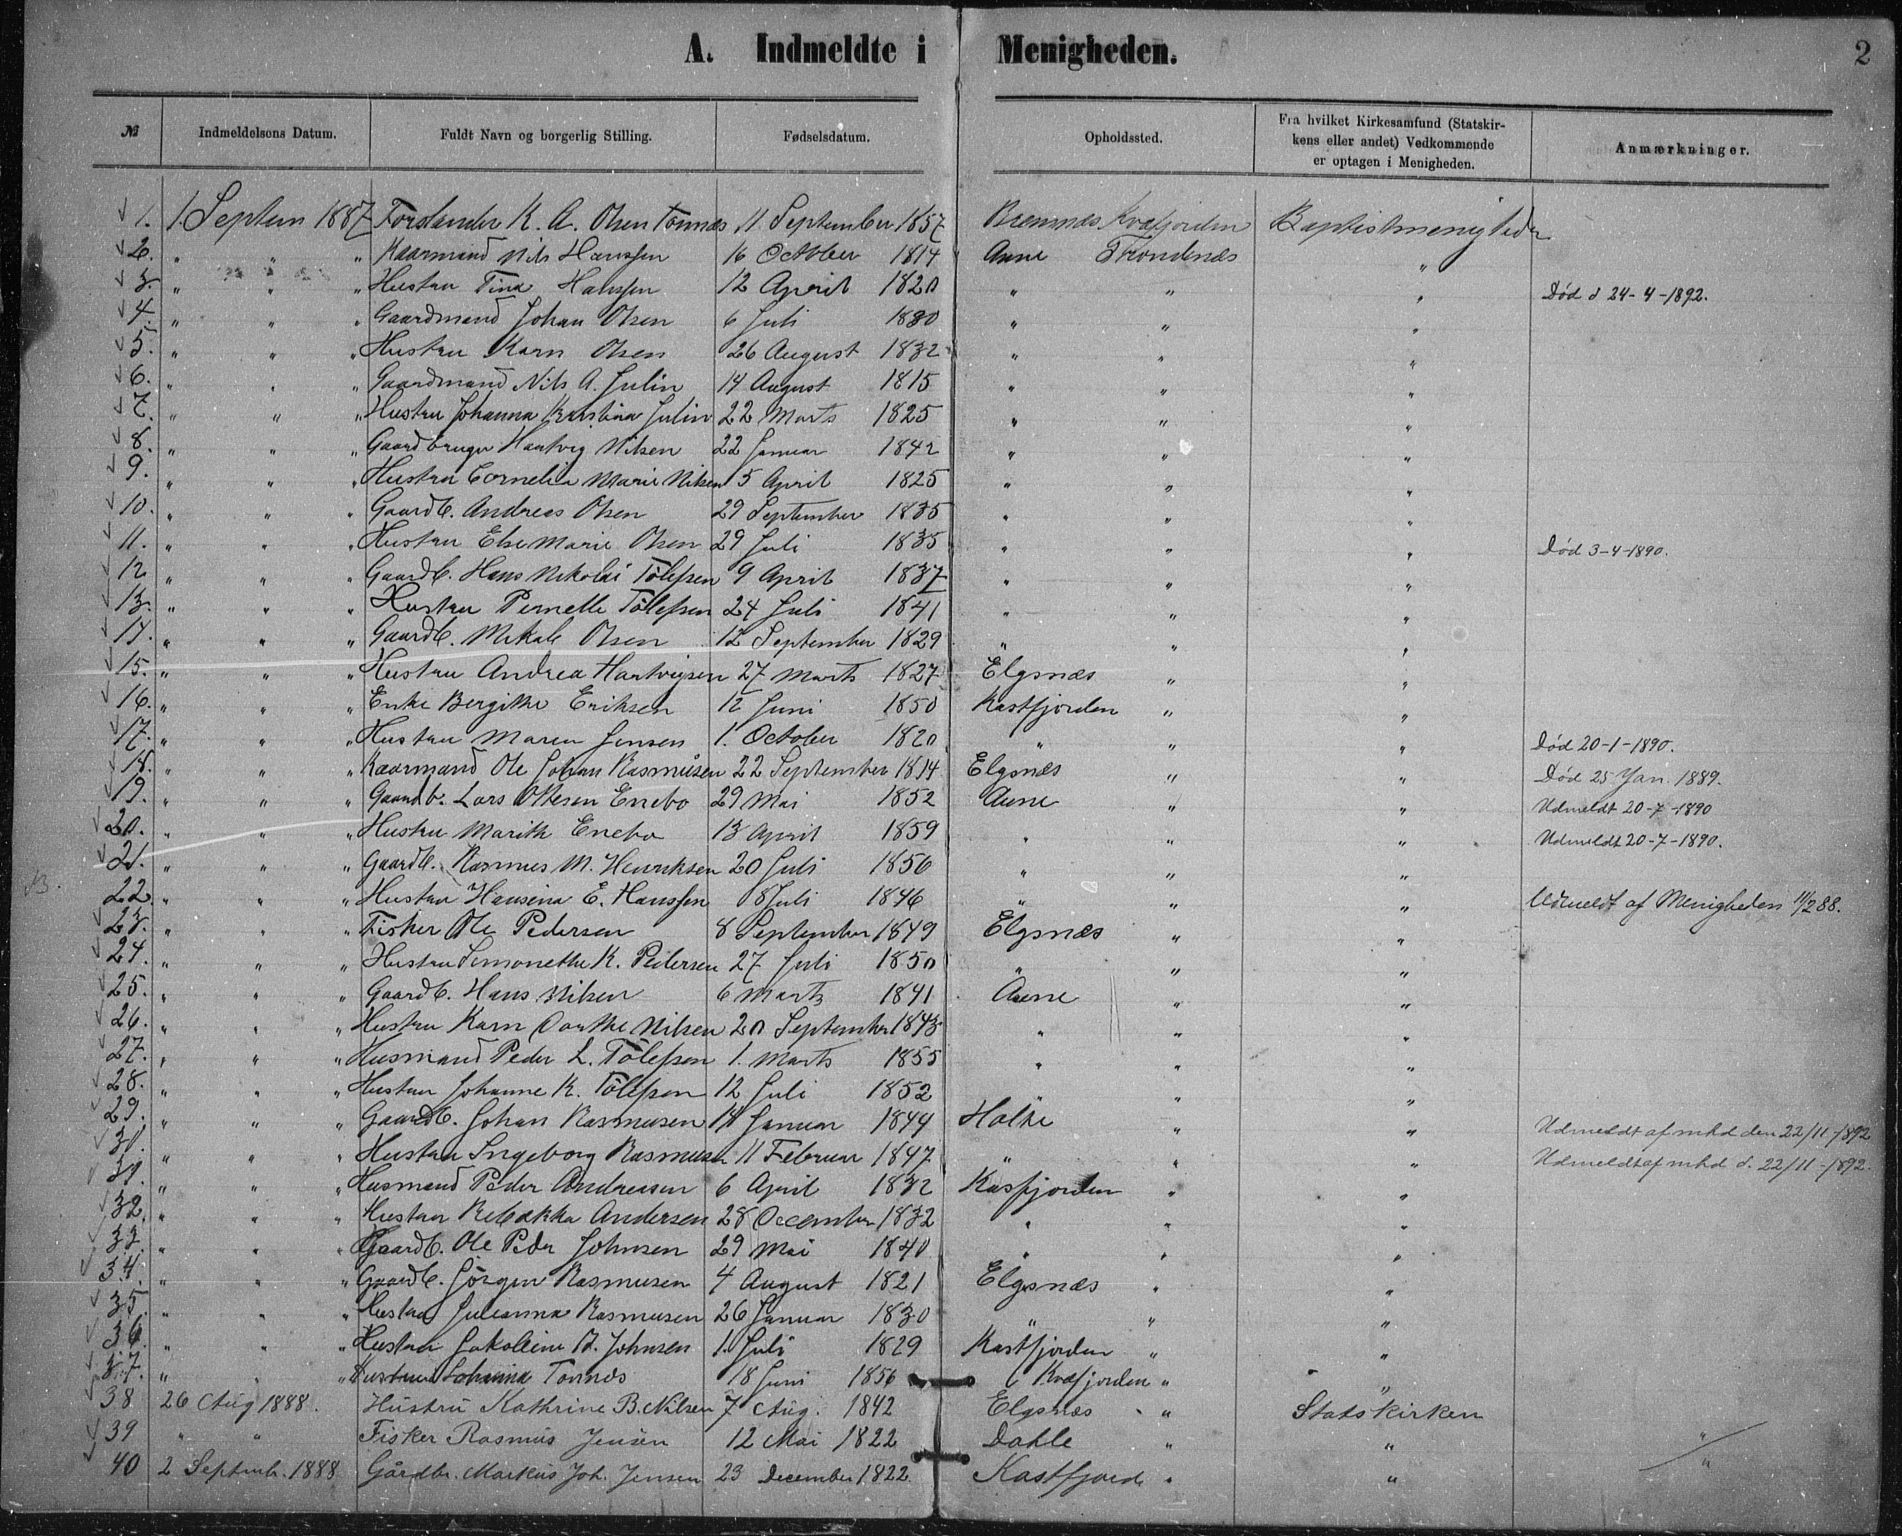 A. Indmeldte i Menigheden. 2
№ Indmeldelsens Datum. Fuldt Navn og borgerlig Stilling. Fødselsdatum. Opholdssted. Fra hvilket Kirkesamfund (Statskir-
kens eller andet) Vedkommende
er optagen i Menigheden. Anmærkninger.
1. 1. Septem 1887 Forstander K. A. Olsen Tønnæs 11 September 1857 Bremnæs Kvæfjorden Baptistmenigheden
2. " " " Kaarmand Nils Hanssen 16 October 1814 Aune Trondenæs "
3. " " " Hustru Tina Hanssen 12 April 1820 " " " Død d 24-4-1892.
4. " " " Gaardmand Johan Olsen 6 Juli 1830 " " "
5. " " " Hustru Karn Olsen 26 August 1832 " " "
6. " " " Gaardmand Nils A. Julin 14 August 1815 " " "
7. " " " Hustru Johanna Kristina Julin 22 Marts 1825 " " "
8. " " " Gaardbruger Hartvig Nilsen 22 Januar 1842 " " "
9. " " " Hustru Cornelia Marie Nilsen 5 April 1825 " " "
10. " " " Gaardb. Andreas Olsen 29 September 1835 " " "
11. " " " Hustru Else Marie Olsen 29 Juli 1835 " " " Død 3-4-1890.
12 " " " Gaardb. Hans Nikolai Tölefsen 9 April 1837 " " "
13. " " " Hustru Pernelle Tölefsen 24 Juli 1841 " " "
14. " " " Gaardb. Mikal Olsen 12 September 1829 " " "
15. " " " Hustru Andrea Hartvigsen 27 Marts 1827 Elgsnæs " "
16. " " " Enke Bergitte Eriksen 12 Juni 1850 Kastfjorden " "
17. " " " Hustru Maren Jensen 1. October 1820 " " " Død 20-1-1890.
18. " " " Kaarmand Ole Johan Rasmusen 22 September 1814 Elgsnæs " " Død 25 Jan. 1889.
19. " " " Gaardb. Lars Ottesen Enebo 29 Mai 1852 Aune " " Udmeldt 20-7-1890
20. " " " Hustru Marith Enebo 13 April 1859 " " " Udmeldt 20-7-1890.
21. " " " Gaardb. Rasmus M. Henriksen 20 Juli 1856 " " "
22. " " " Hustru Hansina E. Hanssen 8 Juli 1846 " " " Udmeldt af Menigheden 11/2 88.
23. " " " Fisker Ole Pedersen 8 September 1849 Elgsnæs " "
24. " " " Hustru Simonethe K. Pedersen 27 Juli 1850 " " "
25. " " " Gaardb. Hans Nilsen 6 Marts 1841 Aune " "
26. " " " Hustru Karn Dorthe Nilsen 20 September 1843 " " "
27. " " " Husmand Peder L. Tölefsen 1. Marts 1855 " " "
28. " " " Hustru Johanne K. Tölefsen 12 Juli 1852 " " "
29. " " " Gaardb. Johan Rasmusen 14 Januar 1844 Holte " " Udmeldt af mhd den 22/11-1892
30. " " " Hustru Ingeborg Rasmusen 11 Februar 1847 " " " Udmeldt af mhd d. 22/11-1892.
31. " " " Husmand Peder Andreasen 6 April 1832 Kasfjorden " "
32. " " " Hustru Rebækka Andersen 28 December 1832 " " "
33. " " " Gaardb. Ole Peder Johnsen 29 Mai 1840 " " "
34. " " " Gaardb. Jörgen Rasmusen 4 August 1821 Elgsnæs " "
35. " " " Hustru Julianna Rasmusen 26 Januar 1830 " " "
36. " " " Hustru Jakobine Johnsen 1. Juli 1829 Kastfjorden " "
37. " " " Hustru Johanna Tønnæs 18 Juni 1856 Kvæfjorden " "
38 26 Aug 1888. Hustru Kathrine B. Nilsen 7 Aug. 1842 Elgsnæs " Statskirken
39 " " Fisker Rasmus Jensen 12 Mai 1822 Dahle " " "
40 2 Septemb. 1888 Gårdbr. Markus Joh. Jensen 23 December 1822. Kastfjord " " "